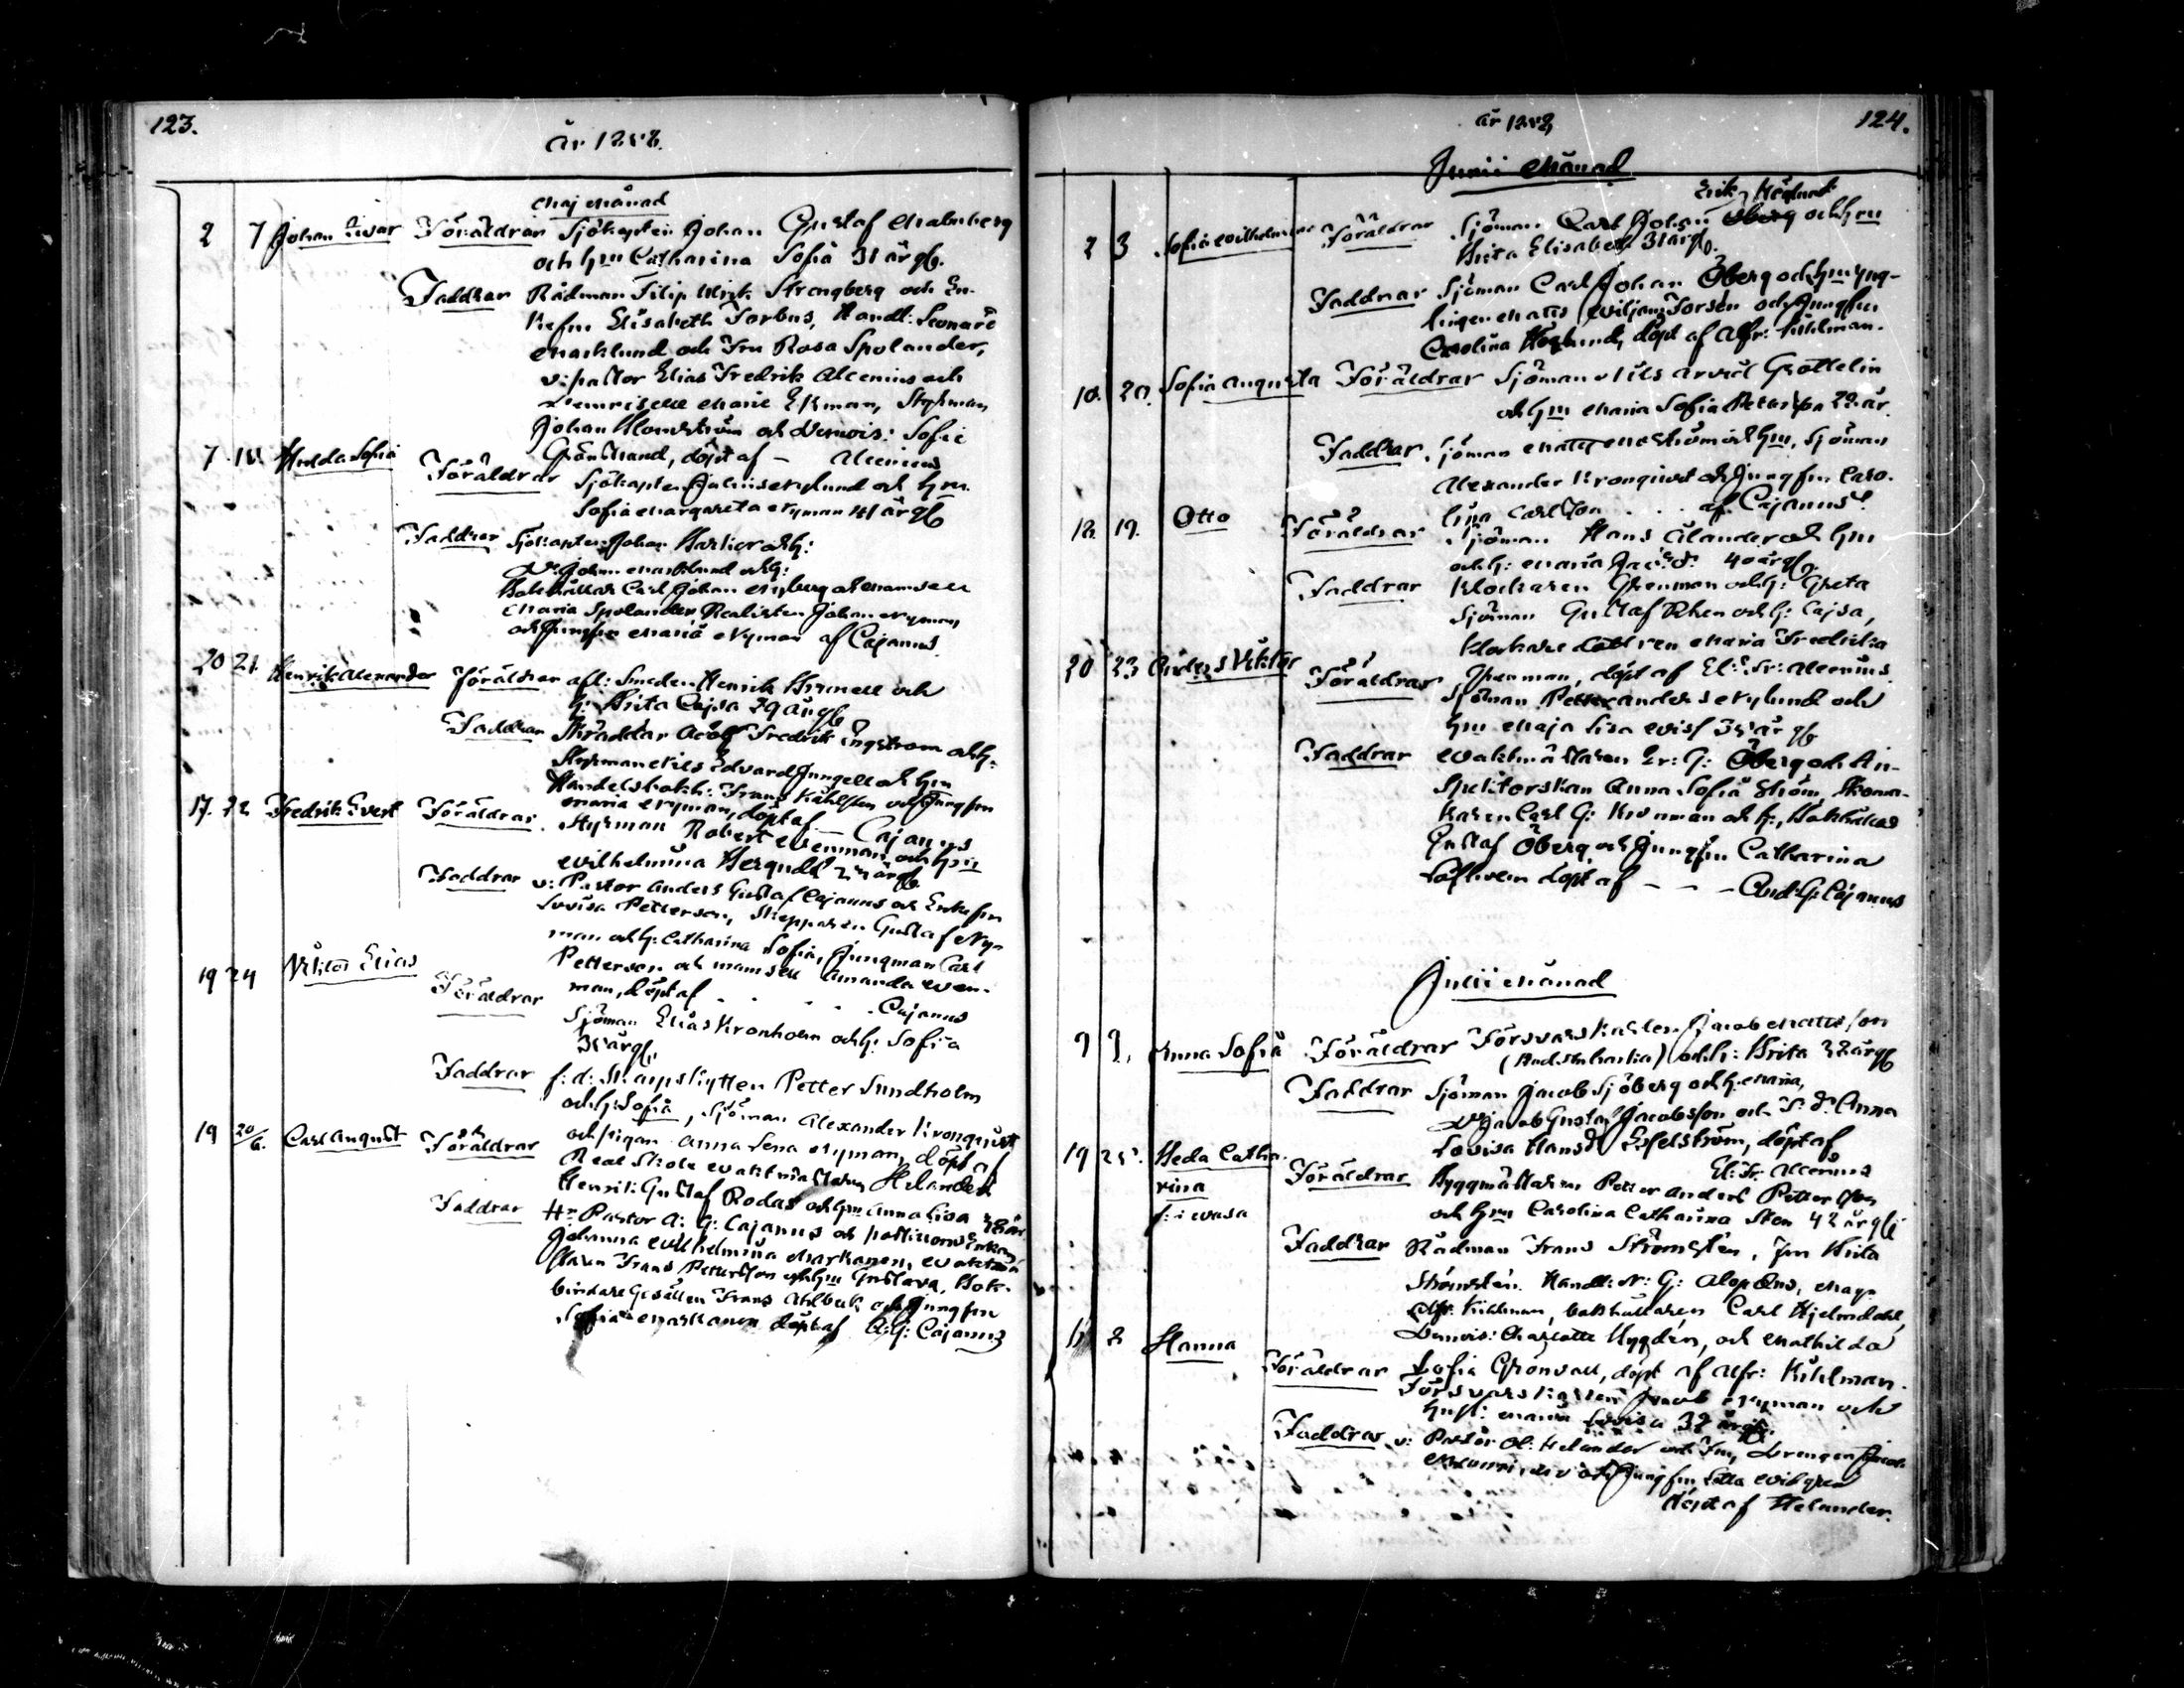 123.
År 1858.
Maj Månad
2 7 Johan Ivar Föräldrar Sjökapten Johan Gustaf Malmberg
och hm Catharina Sofia 31 år gl.
Faddrar Rådman Filip Ulrik Strengberg och En-
kefru Elisabeth Forbus, Handl: Leonard
Marklund och Fru Rosa Spolander,
v: pastor Elias Fredrik Alcenius och
Demoiselle Marie Ekman, Styrman
Johan Blomström och Demois: Sofie
Grönstrand, döpt af — Alcenius
7 Hedda Sofia Föräldrar Sjökapten Julius Nylund och hm
Sofia Margareta Nyman 41 år gl
Faddrar Sjökapten Johan och h:
Do Johan Marklund och h:
Bokhållar Carl Johan Nyberg och Mamsell
Maria Spolander, Realisten Johan Nyman,
och Jungfru Maria Nyman af Cajanus.
20 21 Henrik Alexander Föräldrar afl: Smeden Henrik och
h: Brita Cajsa 29 år gl
Faddrar Skräddar Adolf Fredrik Engström och h:
Styrman Nils Edvard Jungell och hm
Handelsbokh: Frans och Jungfru
Maria Nyman, döpt af — Cajanus
17. 22 Fredrik Evert Föräldrar Styrman Robert Wenman och hm
Wilhelmina år gl.
Faddrar v: Pastor Anders Gustaf Cajanus och Enkefru
Lovisa Petterson, Skepparen Gustaf Ny-
man och h: Catharina Sofia, Jungman Carl
Petterson och Mamsell Amanda Wen-
man, döpt af . . . . Cajanus
19 24 Viktor Elias Föräldrar Sjöman Elias Kronholm och h: Sofia
år gl.
Faddrar f: d: Skarpskytten Petter Sundholm
och h: Sofia, Sjöman Alexander Kronqvist
och pigan Anna Lena Nyman, döpt af
Helander
19 20/6. Carl August Föräldrar Real Skole Vaktmästaren
Henrik Gustaf Rodas och hm Anna Lisa år.
Faddrar Hr Pastor A: G: Cajanus och
Johanna Wilhelmina Markanen, Vaktmä-
staren Frans Petterson och hm Gustava, Bok-
bindare Gesällen Frans Ahlbeck och Jungfru
Sofia Markanen döpt af A: G: Cajanus

år 1858 124.
Junii Månad
Erik Höglund
2 3 Sofia Wilhelmina Föräldrar Sjöman Carl Johan Öberg och hm
Brita Elisabeth 31 år gl.
Faddrar Sjöman Carl Johan Öberg och hm Yng-
lingen Matts Wiljam Forsén och Jungfru
Carolina Höglund, döpt af Alfr: Kihlman.
10. 20. Sofia Augusta Föräldrar Sjöman Nils Arvid Grottelin
och hm Maria Sofia Petersson år
Faddrar Sjöman Matts och hm, Sjöman
Alexander Kronqvist och Jungfru Caro-
lina Carlsson . . . af Cajanus.
18. 19. Otto Föräldrar Sjöman Hans Ålander och hm
och h: Maria 40 år gl.
Faddrar Klockaren Grenman och h: Greta
Sjöman Gustaf Rhen och h: Cajsa,
Klockare Dottren Maria Fredrika
Grenman, döpt af El: Fr: Alcenius.
20 23 Anders Viktor Föräldrar Sjöman Petter Anders Nylund och
hm Maja Lisa år gl
Faddrar Waktmästaren Er: G: Öberg och In-
spektorskan Anna Sofia Ström, Skoma-
karen Carl G: och h:, Bokhållar
Gustaf Öberg och Jungfru Catharina
döpt af — — — And: G: Cajanus
Julii Månad
9 9. Anna Sofia Föräldrar Försvarskarlen Jacob Mattsson
och h: Brita år gl
Faddrar Sjöman Jacob Sjöberg och h: Maria,
Do Jacob Gustaf Jacobsson och Anna
Lovisa Hansdr döpt af
El: Fr: Alcenius
19 25. Heda Catha-
rina
f: i Wasa Föräldrar Byggmästaren Petter Anders Petterson
och hm Carolina Catharina 42 år gl
Faddrar Rådman Frans Strömstén, Fru Brita
Strömstén. Handl: N: G: Alopæus, Mag:
Alfr: Kihlman, bokhållaren Carl Hjelmdahl,
Demois: Charlotte Nygdén, och Mathilda
Sofia Grönvall, döpt af Alfr: Kihlman.
8 Hanna Föräldrar Försvarskarlen Jacob Nyman och
hust: Maria Lovisa 32 år gl.
Faddrar v: Pastor Ol: Helander och Fru, Drengen
och Jungfru Lotta
döpt af Helander.